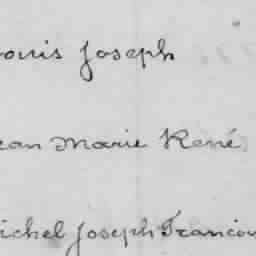 ouis Joseph
ean Marie René
ichel Joseph Francoi